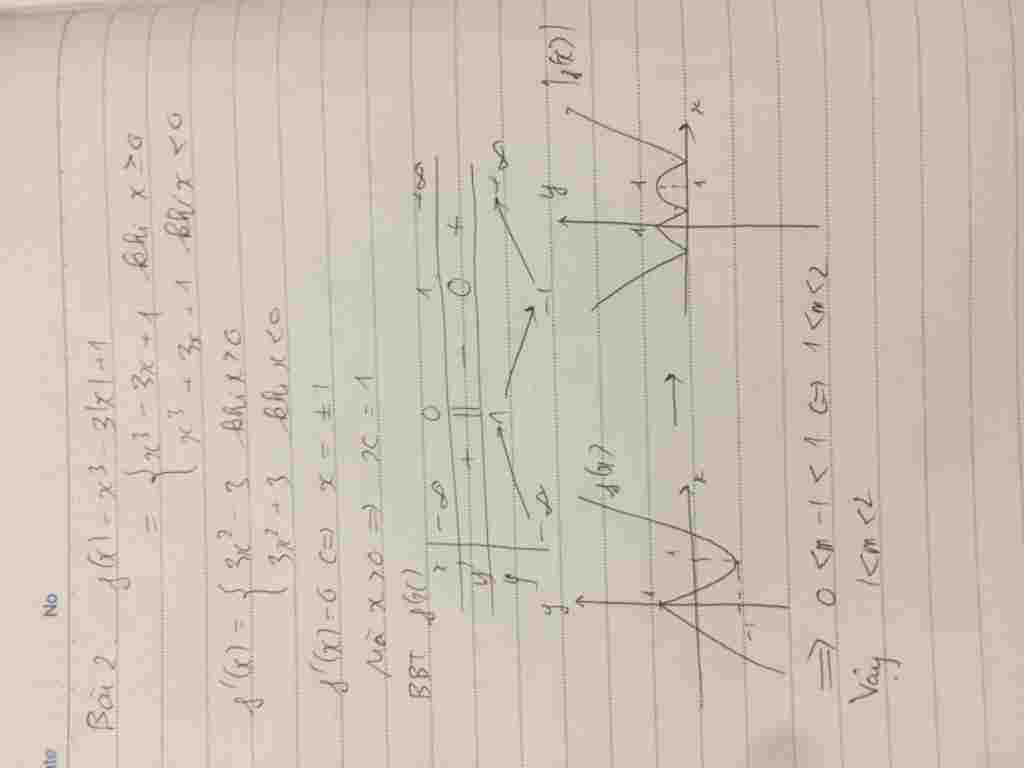 No
Bài 2 f(x) = x³ - 3|x| + 1
= { x³ - 3x + 1 khi x ≥ 0
x³ + 3x + 1 khi x < 0
f'(x) = { 3x² - 3 khi x > 0
3x² + 3 khi x < 0
f'(x) = 0 <=> x = ±1
Mà x > 0 => x = 1
BBT f(x)
x -∞ 0 1 +∞
y' + || - 0 +
y -∞ 1 -1 +∞
y f(x) → y |f(x)|
1 1 x 1 1 x
-1 1
=> 0 < m - 1 < 1 <=> 1 < m < 2
Vậy 1 < m < 2